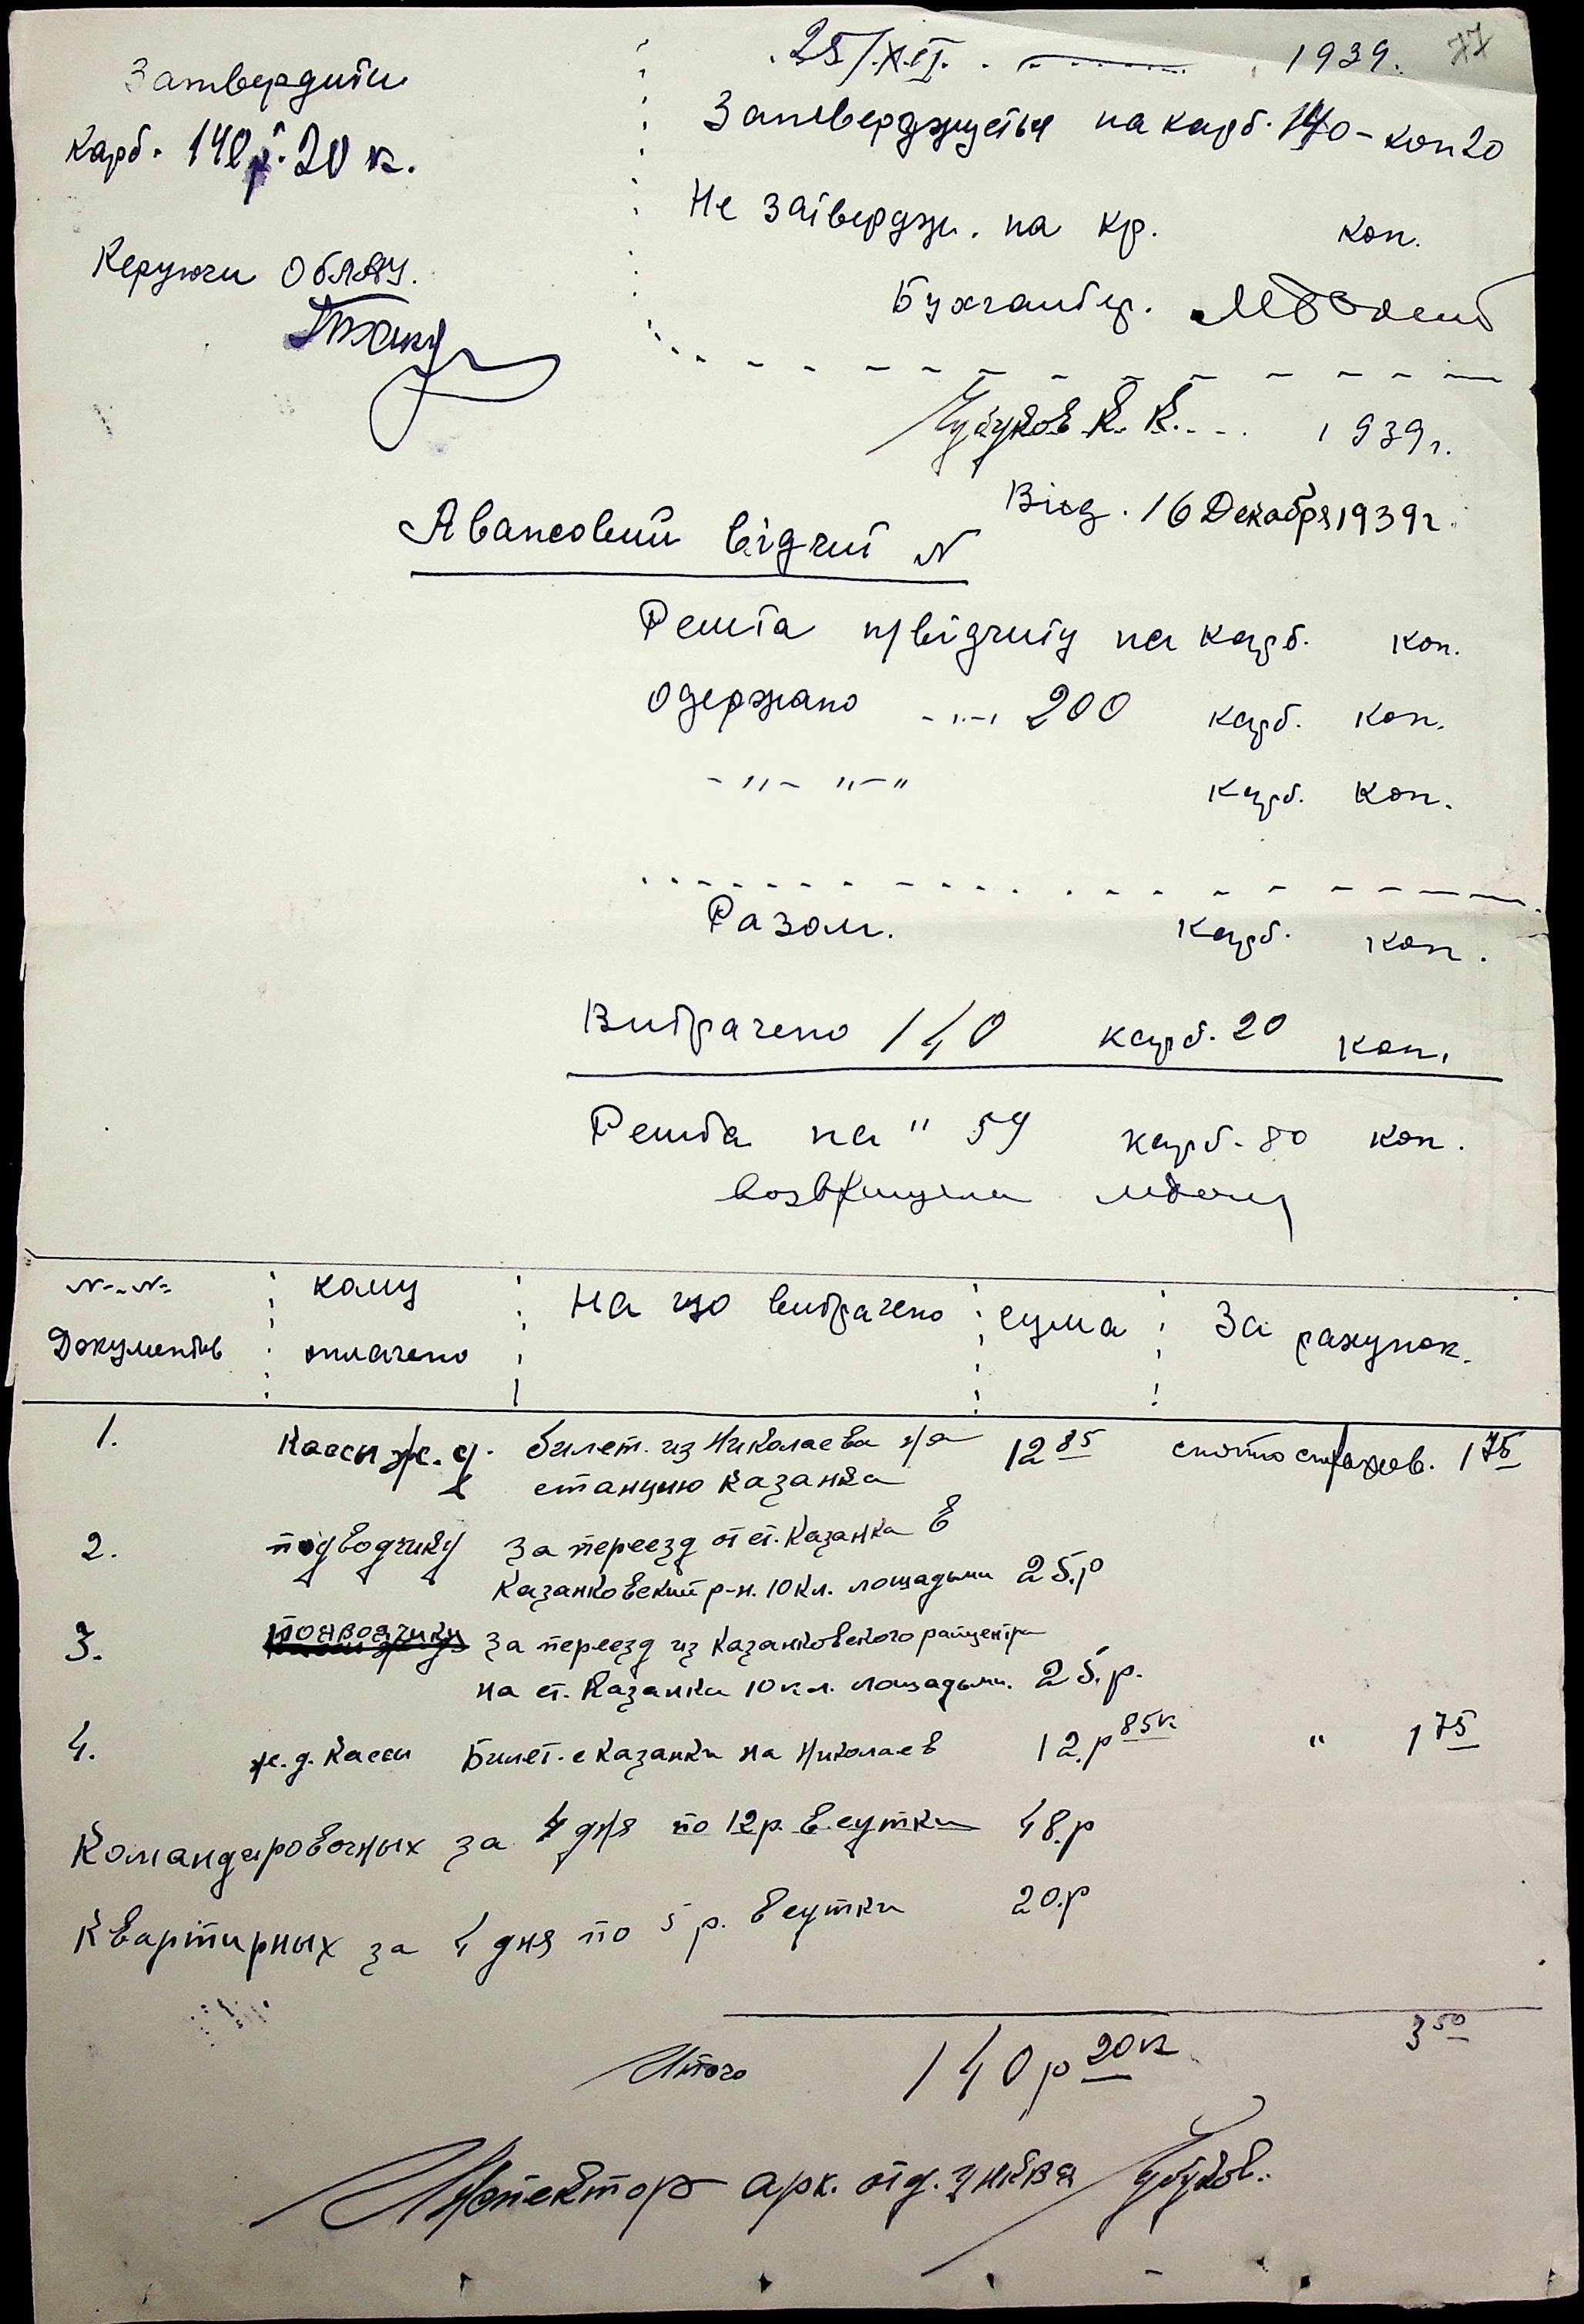 77
Затвердити
карб. 140 р. 20 к.
Керуючи Облаву.
25/XII. 1939.
Затверджується на карб. 140 - коп 20
Не затвердж. на кр. коп.
Бухгалтер.
Чубуков К. К. 1939 г.
Від. 16 Декабря 1939 г.
Авансовий відчит N
Решта п/відчиту на карб. коп.
Одержано -„- 200 карб. коп.
-„- „-„ карб. коп.
Разом. карб. коп.
Витрачено 140 карб. 20 коп.
Решта на " 59 карб. 80 коп.
N-N Документів
кому оплачено
На що витрачено
сума
За рахунок.
1. Кассы ж. д. билет. из Николаева на станцию Казанка 12 85 страхов. 1 75
2. подводчику за переезд от ст. Казанка в
Казанковский р-н. 10 кл. лошадьми 25.р
3. подводчику за переезд из Казанковского райцентра
на ст. Казанка 10 кл. лошадьми. 25.р.
4. ж. д. Кассы Билет. с Казанки на Николаев 12.р 85 к " 1 75
Командировочных за 4 дня по 12 р. в сутки 48.р
Квартирных за 4 дня по 5 р. в сутки 20.р
Итого 140 р 20 к 3 50
Инспектор арх. отд. УНКВД Чубуков.